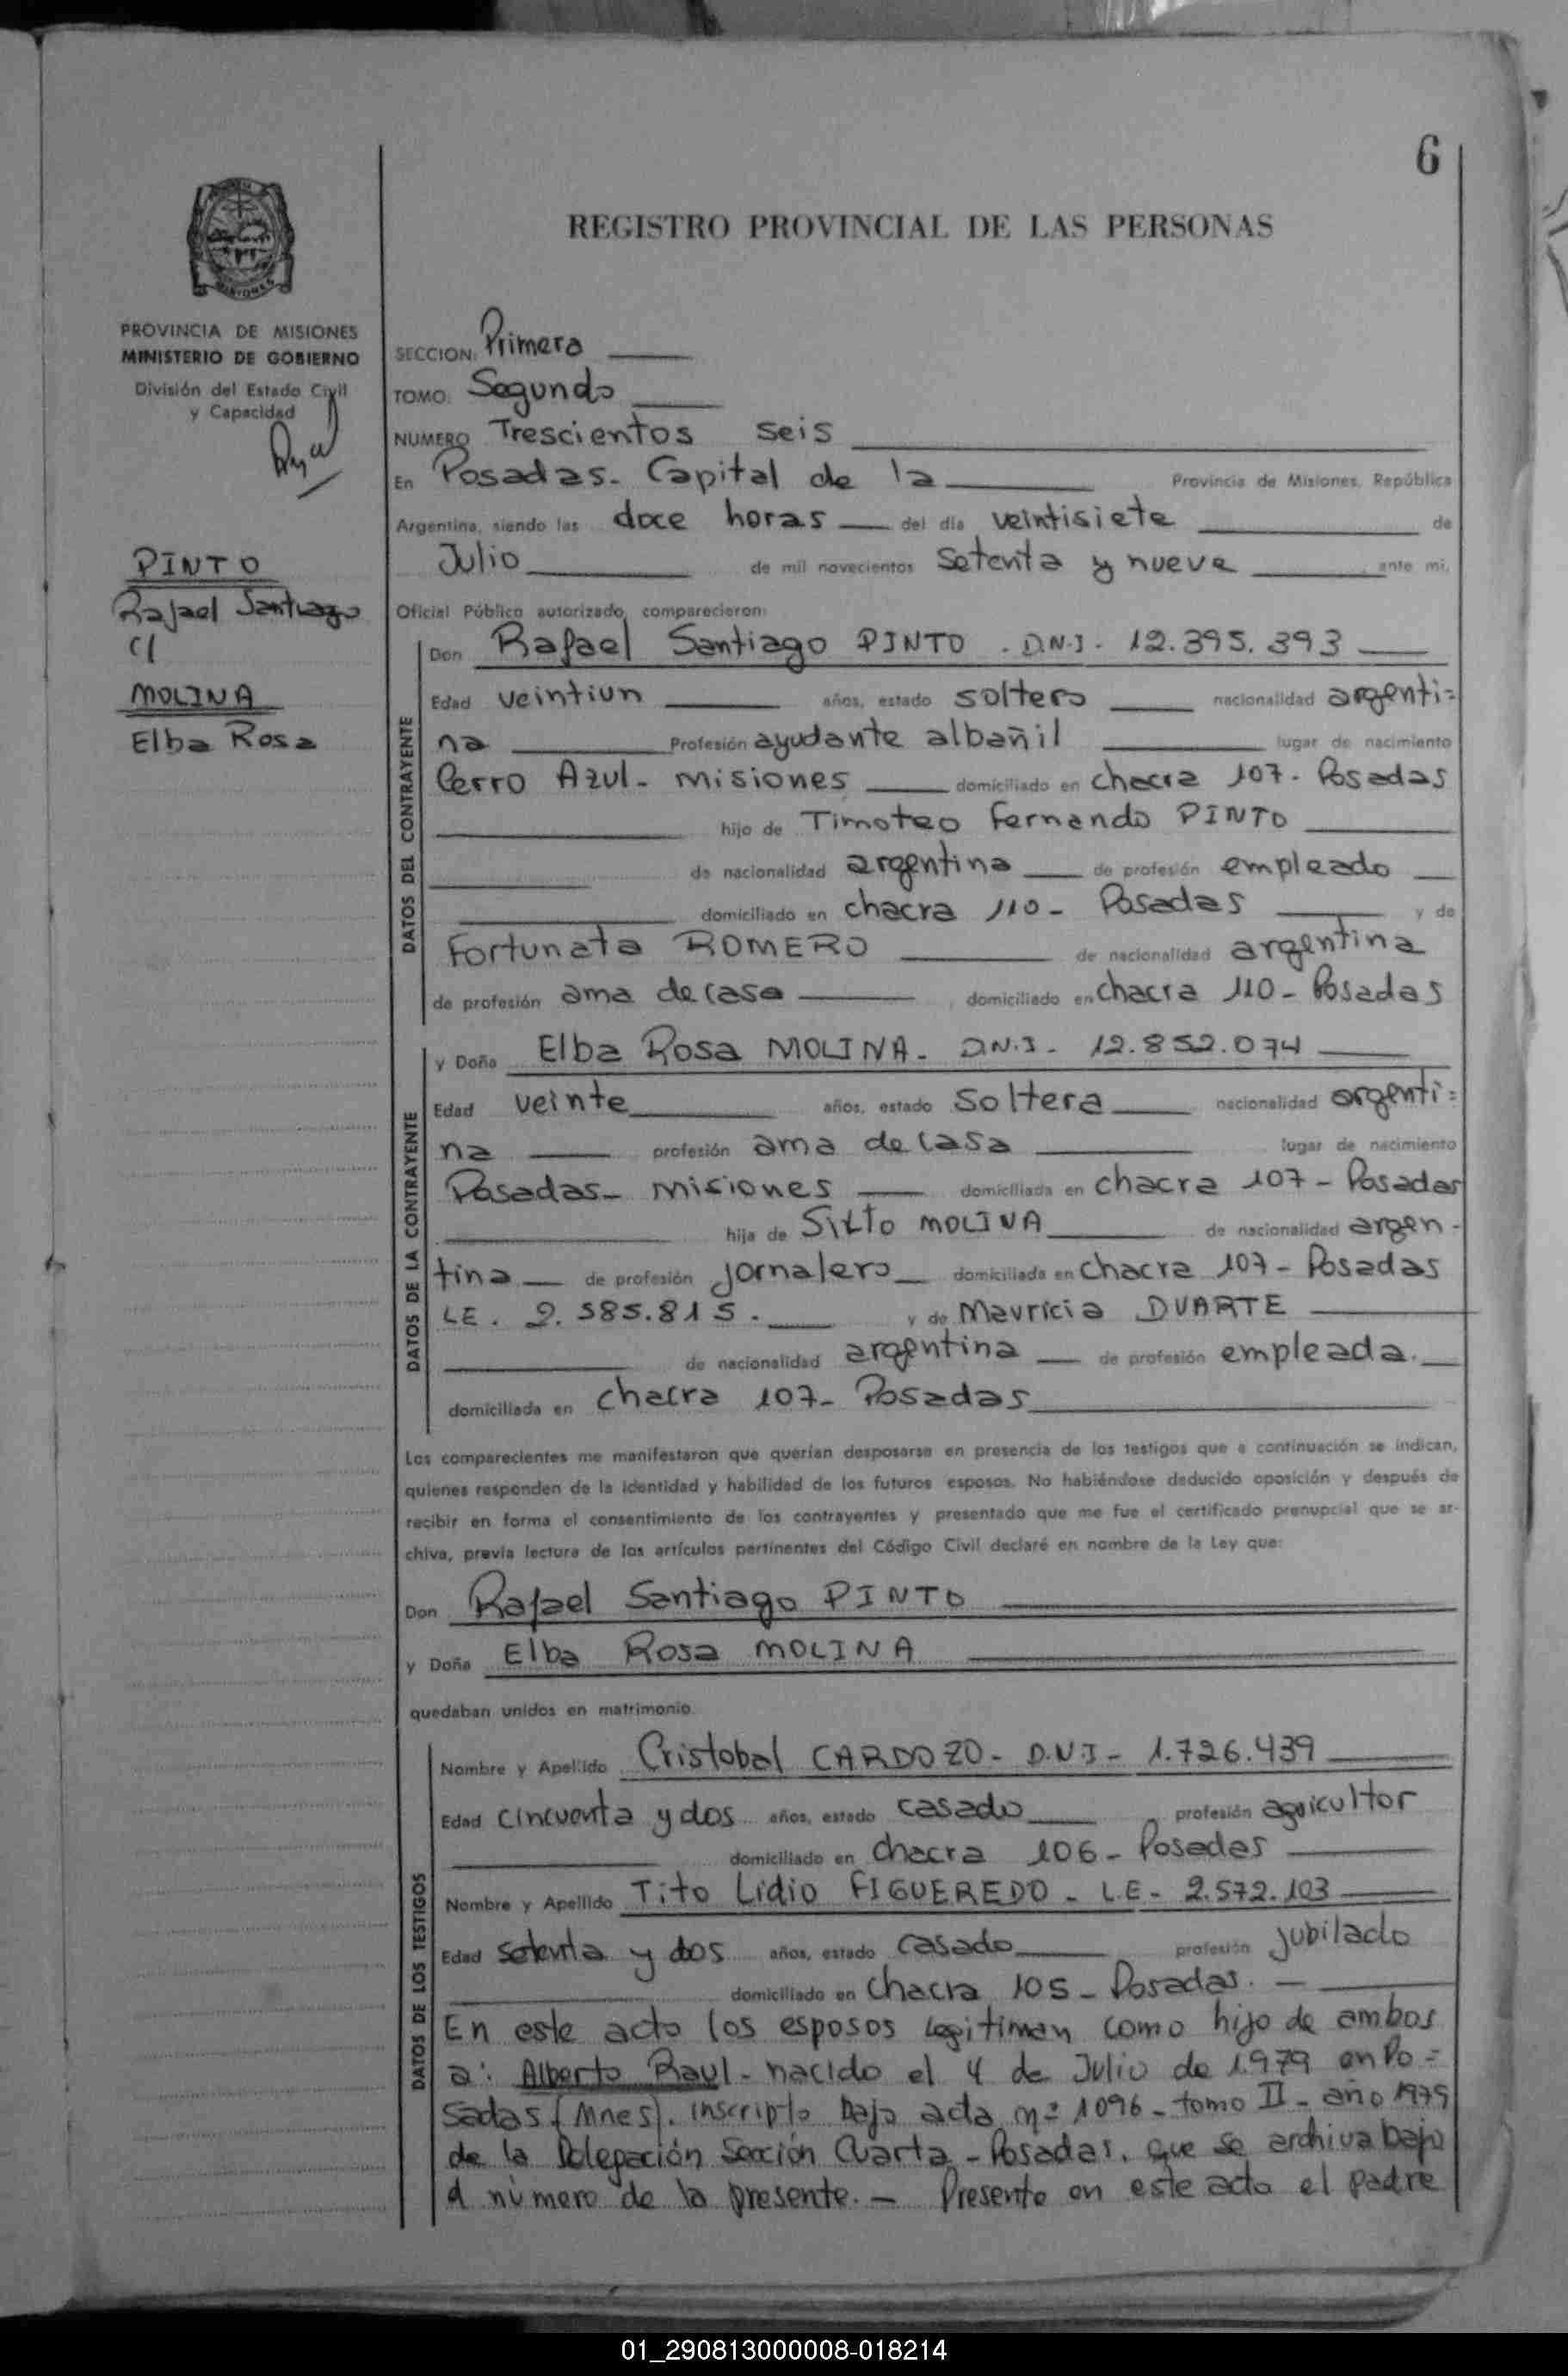 6
REGISTRO PROVINCIAL DE LAS PERSONAS
PROVINCIA DE MISIONES
MINISTERIO DE GOBIERNO
División del Estado Civil
y Capacidad
PINTO
Rafael Santiago
c/
MOLINA
Elba Rosa
SECCION: Primera
TOMO: Segundo
NUMERO Trescientos seis
En Posadas. Capital de la Provincia de Misiones, República
Argentina, siendo las doce horas del día veintisiete de
Julio de mil novecientos setenta y nueve ante mi,
Oficial Público autorizado, comparecieron:
DATOS DEL CONTRAYENTE
Don Rafael Santiago PINTO . D.N.I. 12.395.393
Edad veintiun años, estado soltero nacionalidad argenti=
na Profesión ayudante albañil lugar de nacimiento
Cerro Azul - misiones domiciliado en chacra 107 - Posadas
hijo de Timoteo Fernando PINTO
de nacionalidad argentina de profesión empleado
domiciliado en chacra 110 - Posadas y de
Fortunata ROMERO de nacionalidad argentina
de profesión ama de casa , domiciliado en chacra 110 - Posadas
DATOS DE LA CONTRAYENTE
y Doña Elba Rosa MOLINA - D.N.I. 12.852.074
Edad veinte años, estado soltera nacionalidad argenti=
na profesión ama de casa lugar de nacimiento
Posadas - misiones domiciliada en chacra 107 - Posadas
hija de Sixto MOLINA de nacionalidad argen-
tina de profesión jornalero domiciliada en chacra 107 - Posadas
LE. 2.585.815. y de Mauricia DUARTE
de nacionalidad argentina de profesión empleada.
domiciliada en chacra 107 - Posadas
Los comparecientes me manifestaron que querían desposarse en presencia de los testigos que a continuación se indican,
quienes responden de la identidad y habilidad de los futuros esposos. No habiéndose deducido oposición y después de
recibir en forma el consentimiento de los contrayentes y presentado que me fue el certificado prenupcial que se ar-
chiva, previa lectura de los artículos pertinentes del Código Civil declaré en nombre de la Ley que:
Don Rafael Santiago PINTO
y Doña Elba Rosa MOLINA
quedaban unidos en matrimonio.
DATOS DE LOS TESTIGOS
Nombre y Apellido Cristobal CARDOZO - D.N.I - 1.726.439
Edad cincuenta y dos años, estado casado , profesión agricultor
domiciliado en chacra 106 - Posadas
Nombre y Apellido Tito Lidio FIGUEREDO - L.E - 2.572.103
Edad setenta y dos años, estado casado profesión jubilado
domiciliado en chacra 105 - Posadas. -
En este acto los esposos legitiman como hijo de ambos
a: Alberto Raul - nacido el 4 de Julio de 1979 en Po=
sadas (Mnes). inscripto bajo acta nº 1096 - tomo II - año 1979
de la Delegación Sección Cuarta - Posadas. que se archiva bajo
el número de la presente. - Presente en este acto el padre
01_290813000008-018214